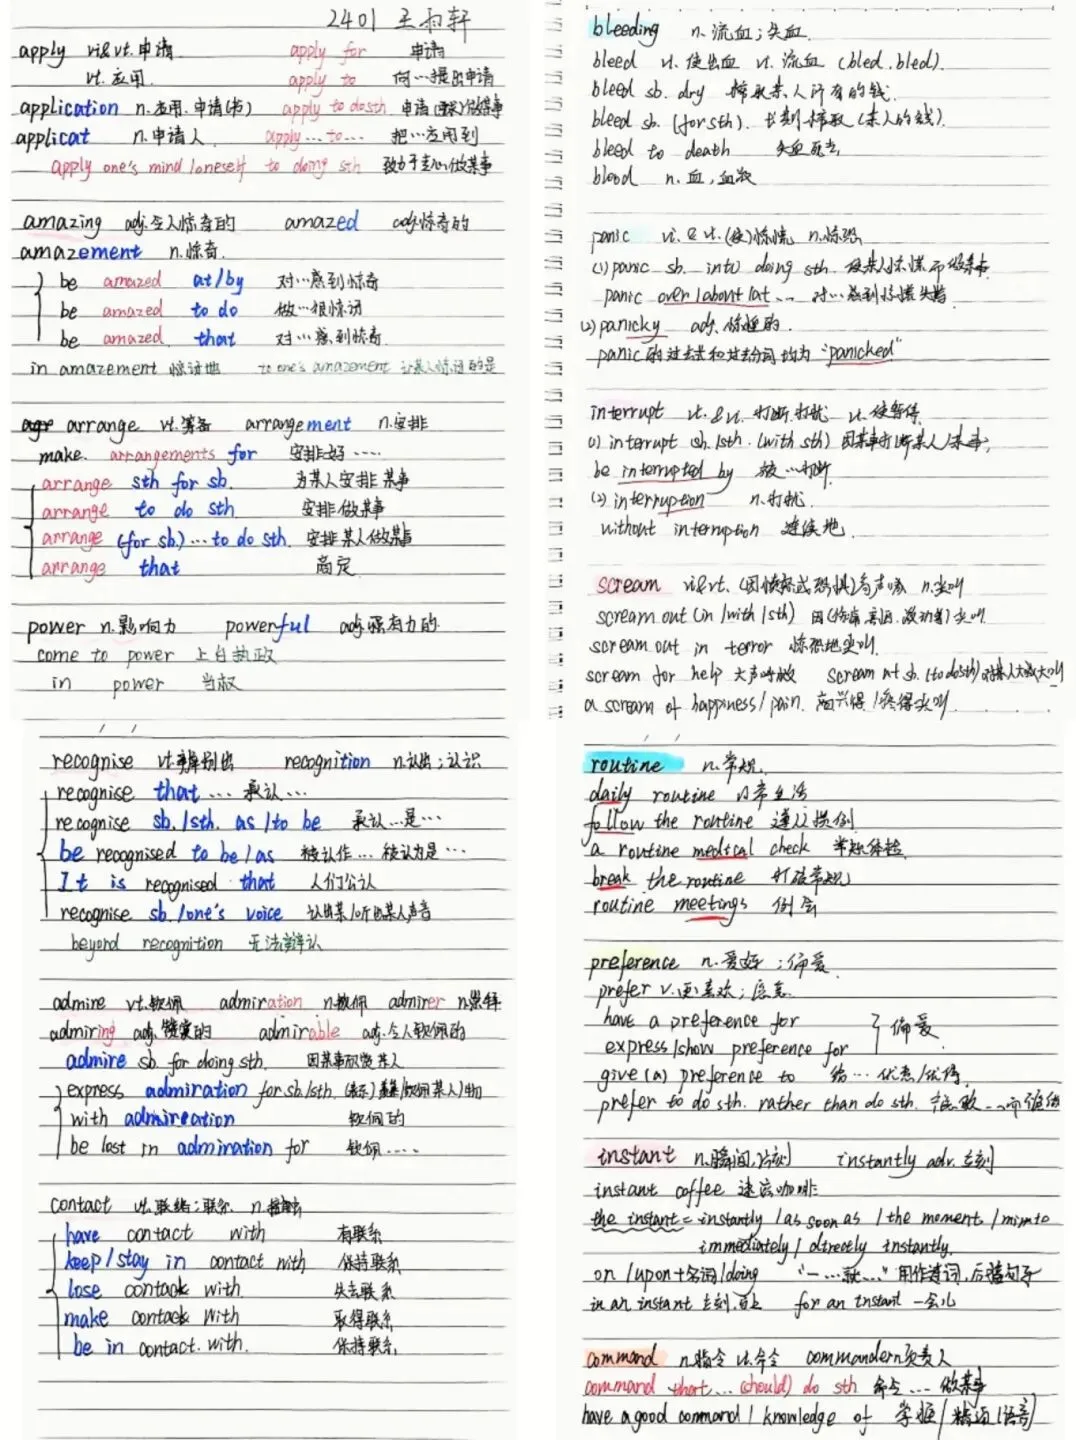 2401 王雨轩
apply vi&vt.申请 apply for 申请
vt.应用 apply to 向…提出申请
application n.应用.申请(书) apply to do sth 申请做某事
applicat n.申请人 apply...to... 把…应用到
apply one's mind/oneself to doing sth 致力于专心做某事
amazing adj.令人惊奇的 amazed adj.惊奇的
amazement n.惊奇.
be amazed at/by 对…感到惊奇
be amazed to do 做…很惊讶
be amazed that 对…感到惊奇.
in amazement 惊讶地 to one's amazement 让某人惊讶的是
arrange vt.筹备 arrangement n.安排
make arrangements for 安排好……
arrange sth for sb. 为某人安排某事
arrange to do sth 安排做某事
arrange (for sb.)...to do sth. 安排某人做某事
arrange that 商定.
power n.影响力 powerful adj.强有力的
come to power 上台执政
in power 当权
recognise vt.辨别出 recognition n.认出;认识
recognise that... 承认…
recognise sb./sth. as/to be 承认…是…
be recognised to be/as 被认作… 被认为是…
It is recognised that 人们公认
recognise sb./one's voice 认出某/听出某人声音
beyond recognition 无法辩认
admire vt.钦佩 admiration n.钦佩 admirer n.崇拜
admiring adj.赞赏的 admirable adj.令人钦佩的
admire sb. for doing sth. 因某事欣赏某人
express admiration for sb./sth. 钦佩某人/物
with admireation 钦佩的
be lost in admiration for 钦佩……
contact vt.联络;联系. n.接触
have contact with 有联系
keep/stay in contact with 保持联系
lose contact with 失去联系
make contact with 取得联系
be in contact.with. 保持联系
bleeding n.流血;失血
bleed vt.使出血 vi.流血 (bled.bled).
bleed sb. dry 榨取某人所有的钱.
bleed sb. (for sth). 长期榨取(某人的钱).
bleed to death 失血死去
blood n.血,血液
panic vi.&vt.(使)惊慌 n.惊恐
(1)panic sb. into doing sth. 使某人惊慌而做某事
panic over/about/at... 对…感到惊慌失措
(2)panicky adj.惊慌的.
panic的过去式和过去分词均为"panicked"
interrupt vt.&vi.打断.打扰 vt.使暂停
(1)interrupt sb./sth.(with sth) 因某事打断某人/某事;
be interrupted by 被…打断.
(2)interruption n.打扰.
without interruption 连续地.
scream vi&vt.(因愤怒或恐惧)高声喊 n.尖叫
scream out (in/with/sth) 因(伤痛.害怕.激动等)尖叫
scream out in terror 惊恐地尖叫.
scream for help 大声呼救 scream at sb.(to do sth)对某人大喊大叫
a scream of happiness/pain. 高兴得/疼得尖叫.
routine n.常规.
daily routine 日常生活
follow the routine 遵从惯例
a routine medical check 常规体检.
break the routine 打破常规
routine meetings 例会
preference n.爱好;偏爱.
prefer v.更喜欢;
have a preference for
express/show preference for 偏爱.
give (a) preference to 给…优惠/优待.
prefer to do sth. rather than do sth.
instant n.瞬间,片刻 instantly adv.立刻
instant coffee 速溶咖啡
the instant=instantly/as soon as/the moment/minute
immediately/directly instantly.
on/upon+名词/doing "一…就…"用作连词,后接句子
in an instant 立刻.马上 for an instant 一会儿
command n.指令 vt.命令 commander n.负责人
command that...(should) do sth 命令…做某事
have a good command/knowledge of 掌握/精通(语言)